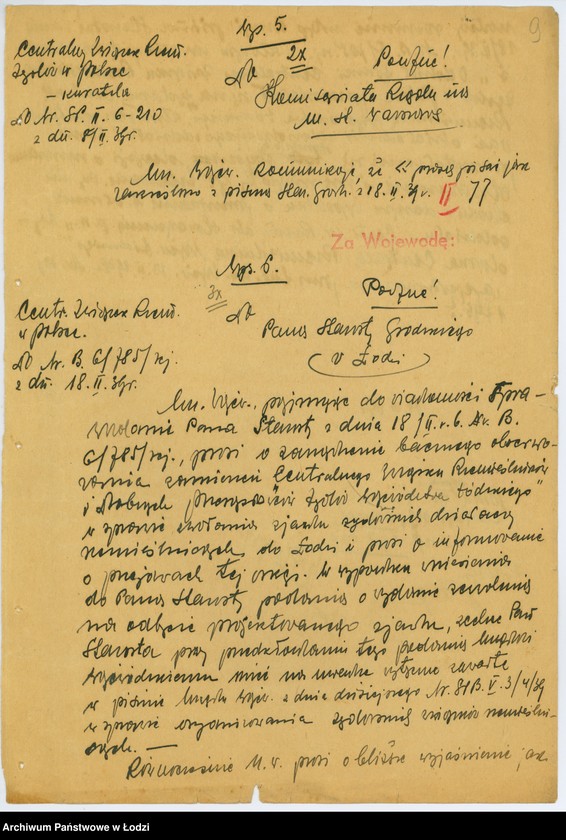 9
Wys. 5.
Centralny Związek Rzem.
Żydów w Polsce
— kuratela
Do Nr. SP. II. 6-210
z dn. 8/II. 39r.
2x
Poufne!
Do
Komisariatu Rządu na
m. st. Warszawę
Urz. Wojew. komunikuje, że
zakreślono z pisma Star. Grodz. z 18. II. 39 r. II 77
Za Wojewodę:
Wys. 6.
3x
Poufne!
Centr. Związek Rzem.
w Polsce.
Do Nr. B. 6/785/rej.
z dn. 18. II. 39r.
Do
Pana Starosty Grodzkiego
w Łodzi
Urz. Wojew., przyjmując do wiadomości spra-
wozdanie Pana Starosty z dnia 18/II. r. b. Nr. B.
6/785/rej., prosi o zarządzenie bacznego obserwo-
wania zamierzeń Centralnego Związku Rzemieślników
i Drobnych Żydów Województwa Łódzkiego"
w sprawie zwołania zjazdu żydowskich działaczy
rzemieślniczych do Łodzi i prosi o informowanie
o przejawach tej akcji. W wypadku wniesienia
do Pana Starosty podania o wydanie zezwolenia
na odbycie projektowanego zjazdu, zechce Pan
Starosta przy przedkładaniu tego podania Urzędowi
Wojewódzkiemu mieć na uwadze wytyczne zawarte
w piśmie Urzędu Wojew. z dnia dzisiejszego Nr. SPB. V. 3/4/39
w sprawie organizowania żydowskich związków rzemieślni-
czych. —
Równocześnie U. W. prosi o bliższe wyjaśnienie, jak
Archiwum Państwowe w Łodzi